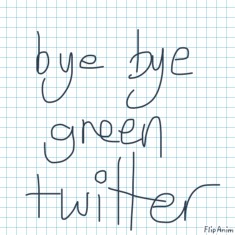 bye bye
green
twitter
FlipAnim